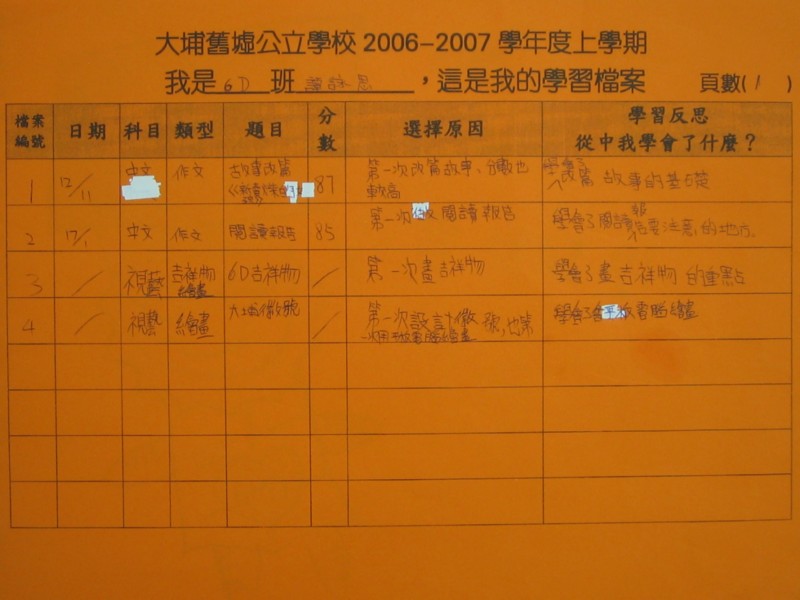 大埔舊墟公立學校 2006-2007 學年度上學期
我是 6D 班，這是我的學習檔案 頁數(1)
檔案編號 日期 科目 類型 題目 分數 選擇原因 學習反思 從中我學會了什麼？
1 12/11 中文 作文 故事改篇 87 第一次改篇故事，分數也較高 學會了改篇故事的基礎
2 17/1 中文 作文 閱讀報告 85 第一次 閱讀報告 學會了閱讀報告要注意的地方。
3 / 視藝 吉祥物繪畫 6D吉祥物 / 第一次畫吉祥物 學會了畫吉祥物的重點
4 / 視藝 繪畫 大埔徽號 / 第一次設計徽號，也第一次用平板電腦繪畫 學會了平板電腦繪畫